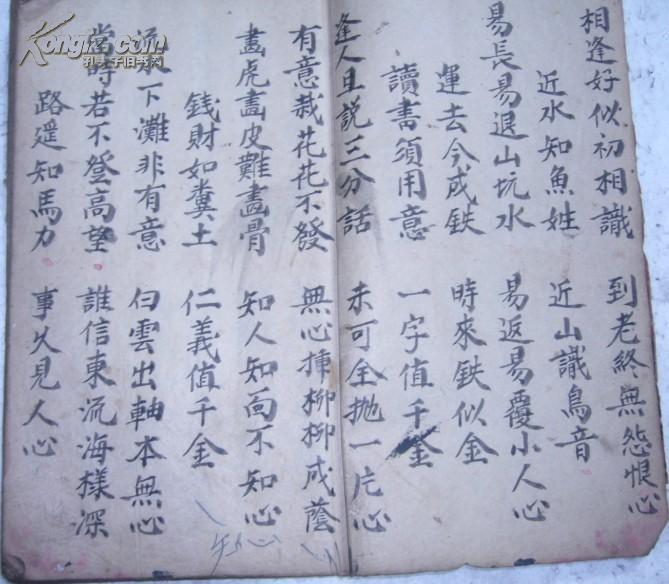 相逢好似初相識 到老終無怨恨心
近水知魚姓 近山識鳥音
易長易退山坑水 易返易覆小人心
運去今成鉄 時來鉄似金
讀書須用意 一字值千金
逢人且説三分話 未可全抛一片心
有意栽花花不發 無心揷柳柳成蔭
畫虎畫皮難畫骨 知人知面不知心
錢財如糞土 仁義值千金
流水下灘非有意 白雲出軸本無心
當時若不登高望 誰信東流海樣深
路遥知馬力 事久見人心
知心
Kongfz.com
孔夫子旧书网